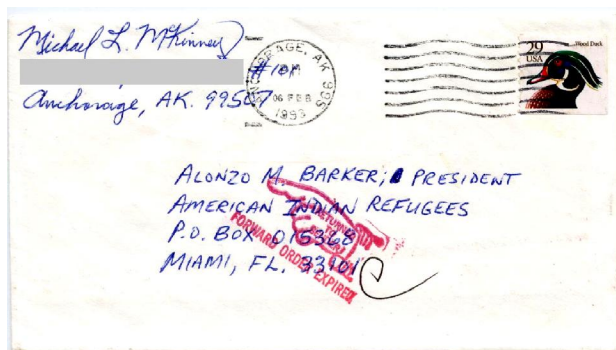 Michael L. McKinney
#10A
Anchorage, AK. 99507
ANCHORAGE, AK 995
PM
06 FEB
1993
29
USA
Wood Duck
ALONZO M. BARKER; PRESIDENT
AMERICAN INDIAN REFUGEES
P.O. BOX 015368
MIAMI, FL. 33101
RETURN
TO
FORWARD ORDER EXPIRED